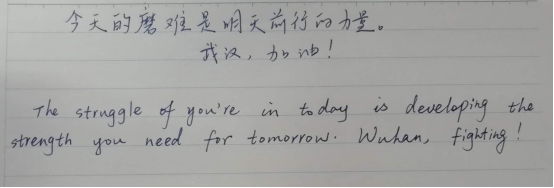 今天的磨难是明天前行的力量。
武汉，加油！
The struggle of you're in today is developing the
strength you need for tomorrow. Wuhan, fighting!